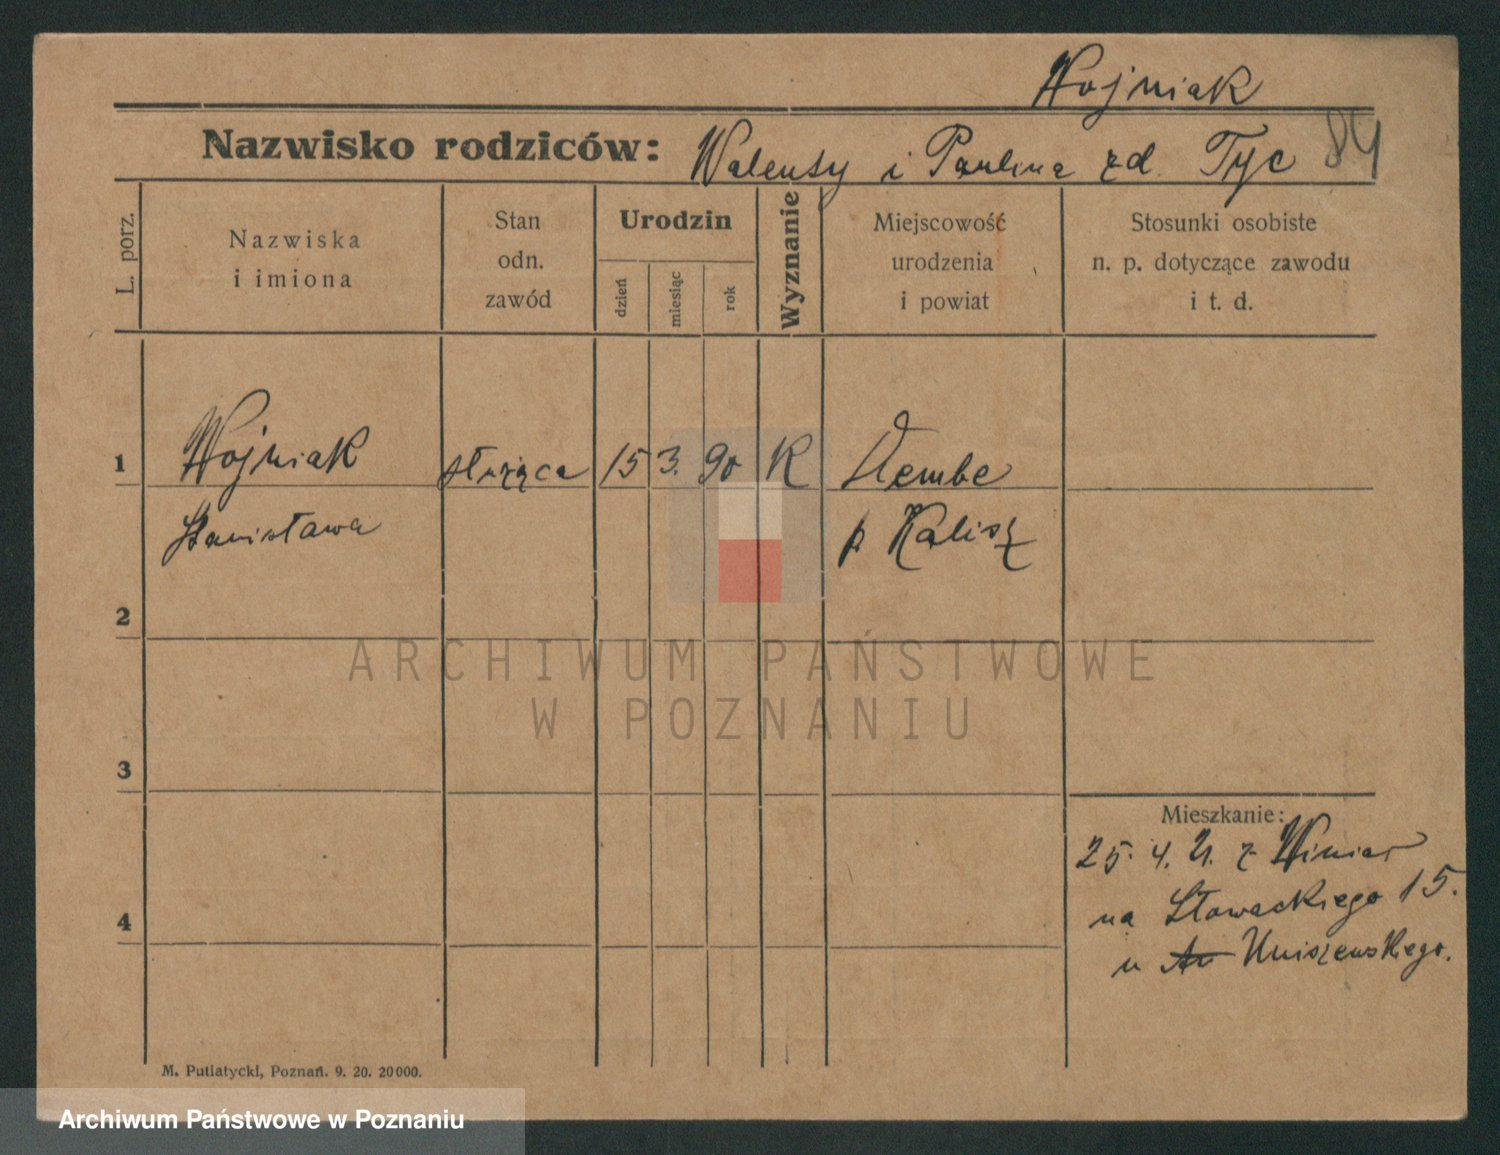 Wojniak
Nazwisko rodziców: Walenty i Paulina zd. Tyc 84
L. porz.
Nazwiska
i imiona
Stan
odn.
zawód
Urodzin
dzień
miesiąc
rok
Wyznanie
Miejscowość
urodzenia
i powiat
Stosunki osobiste
n. p. dotyczące zawodu
i t. d.
1 Wojniak służąca 15 3. 90 K Dembe
Stanisława p. Kalisz
2
ARCHIWUM PAŃSTWOWE
W POZNANIU
3
Mieszkanie:
25. 4. 21. z Winiar
na Słowackiego 15.
4
u Uniszewskiego.
M. Putiatycki, Poznań. 9. 20. 20000.
Archiwum Państwowe w Poznaniu